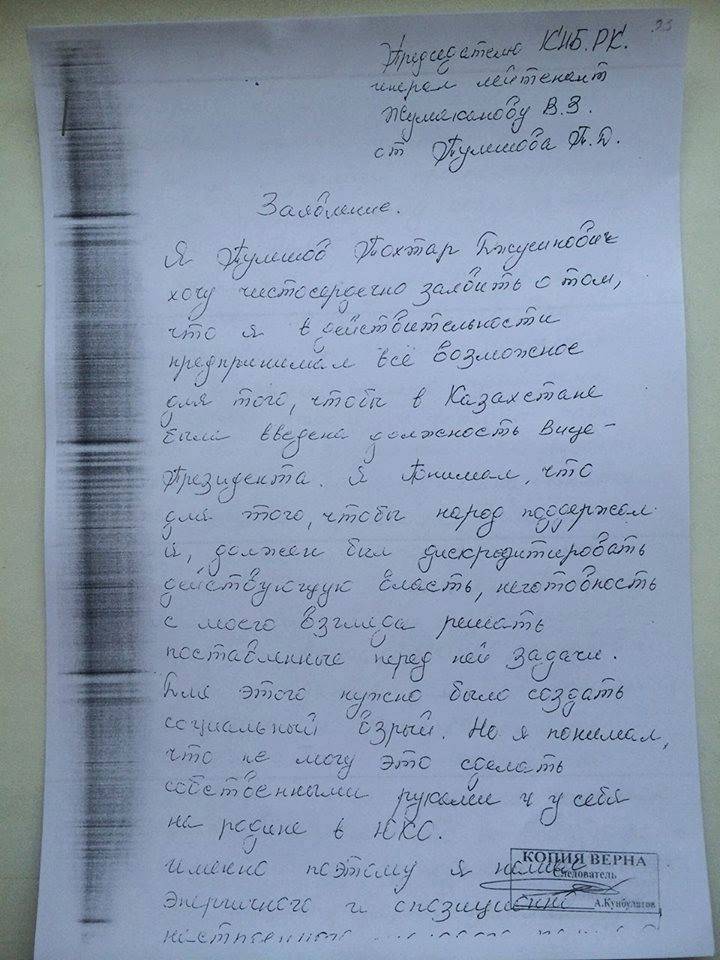 93
Председателю КНБ.РК.
генерал лейтенант
Жумаканову В.З.
от Тулешова Т.Д.
Заявление.
Я Тулешов Тохтар
хочу чистосердечно заявить о том,
что я в действительности
предпринимал всё возможное
для того, чтобы в Казахстане
была введена должность Вице-
Президента. Я понимал, что
для того, чтобы народ поддержал
я, должен был дискредитировать
действующую власть, неготовность
с моего взгляда решать
поставленные перед ней задачи.
Для этого нужно было создать
социальный взрыв. Но я понимал,
что не могу это сделать
собственными руками и у себя
на родине в ЮКО.
именно поэтому я
КОПИЯ ВЕРНА
Следователь
А.Кунбулатов
энергичного и